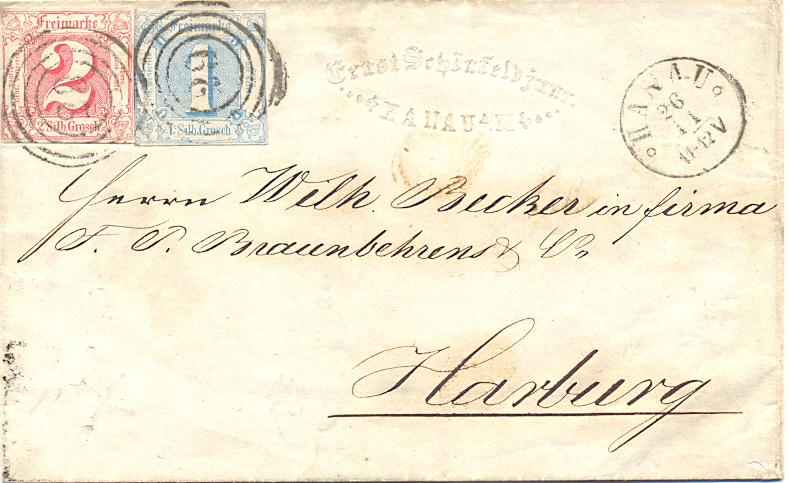 Freimarke
2
2 Silb. Grosch
Freimarke
1
1 Silb. Grosch
Ernst Schönfeld jun.
HANAU a/M
HANAU
26
11
11-12 V
Herrn Wilh. Becker in firma
F. P. Braunbehrens & Co
Harburg